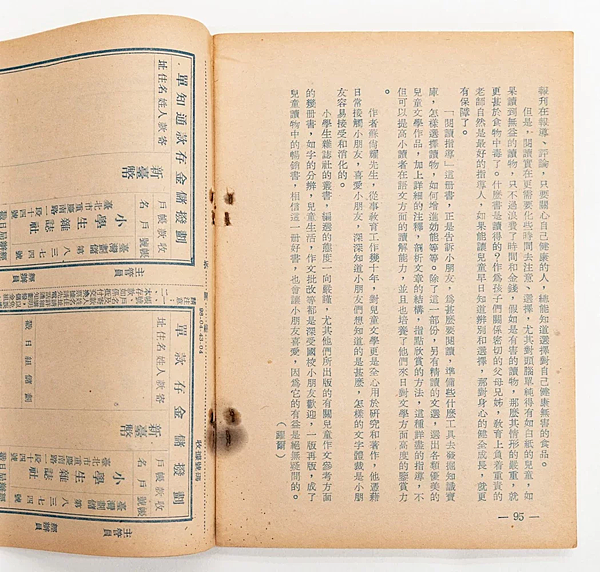 報刊在報導、評論，只要關心自己健康的人，總能知道選擇對自己健康無害的食品。
但是，閱讀實在更需要化些時間去注意、選擇，尤其對頭腦單純得有如白紙的兒童，如
果讀到無益的讀物，只不過浪費了時間和金錢，假如是有害的讀物，那麼其情形的嚴重，就
更甚於食物中毒了。什麼書是讀得的？作為孩子們關係密切的父母兄姊，教育上負着重責的
老師自然是最好的指導人，如果能讓兒童早日知道辨別和選擇，那對身心的健全成長，就更
有保障了。
「閱讀指導」這冊書，正是告訴小朋友，為甚麼要閱讀，準備些什麼工具去發掘知識寶
庫，怎樣選擇讀物，如何增進効能等。除了這一部份，另有精讀的文選，選出各類優美的
兒童文學作品，加上詳細的注釋，剖析文章的結構，指點欣賞的方法，這種詳盡的指導，不
但可以提高小讀者在語文方面的讀解能力，並且也培養了他們來日對文學方面高度的鑒賞力
。
作者蘇尚耀先生，從事教育工作幾十年，對兒童文學更是全心用於研究和著作，他憑藉
日常接觸小朋友，喜愛小朋友，深深知道小朋友們想知道的是甚麼，怎樣的文字體裁是小朋
友容易接受和消化的。
小學生雜誌社的叢書，編選的態度一向嚴謹，尤其他們所出版的有關兒童作文參考方面
的幾冊書，如字的分辨，兒童生活，作文批改等都是深受國校小朋友歡迎，一版再版，成了
兒童讀物中的暢銷書，相信這一冊好書，也會讓小朋友喜愛，因為它的有
— 95 —
單知通款存金儲撥劃
址住名姓人款寄
新臺幣
收款帳戶
戶名
帳號
小學生雜誌社
臺北市重慶南路
主管員
經辦員
單款存金儲撥劃
址住名姓人款寄
新臺幣
戶帳款收
小學生雜誌社
臺北市重慶南路
收據號碼
主管員
經辦員